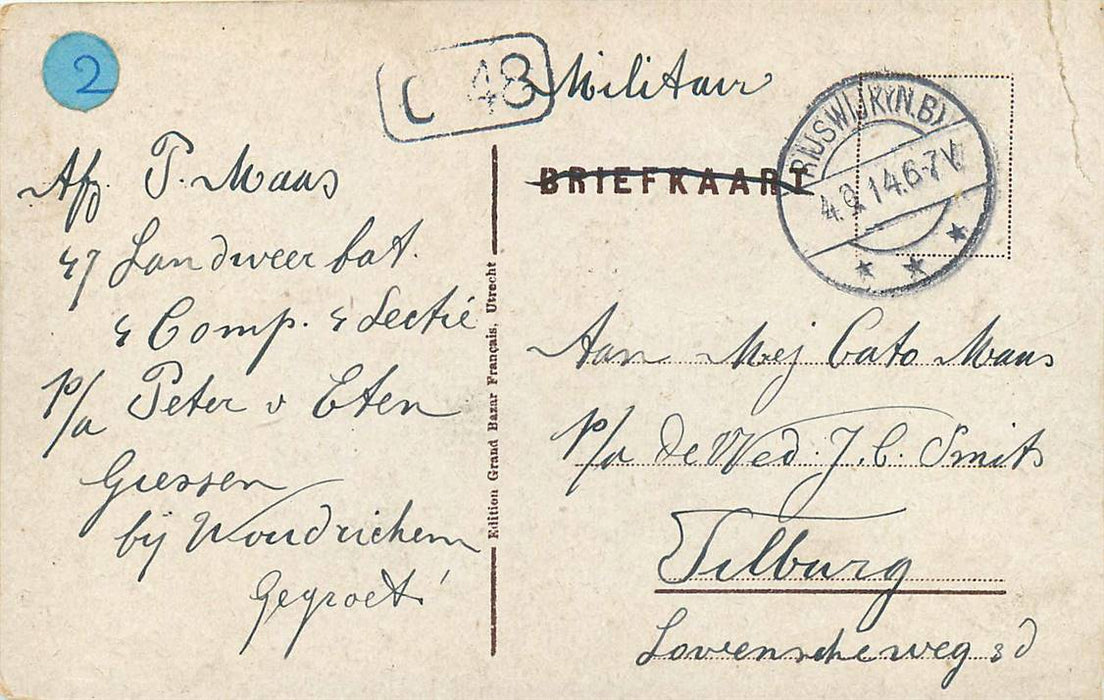 2
C 48
Militair
BRIEFKAART
RIJSWIJK (N.B)
4.9.14.6-7V
Afz. P. Maas
47 Landweer bat.
4 Comp. 4 Sectie
p/a Peter v Eten
Giessen
bij Woudrichem
Gegroet
Edition Grand Bazar Français, Utrecht
Aan Mej Cato Maas
p/a de Wed. J. C. Smits
Tilburg